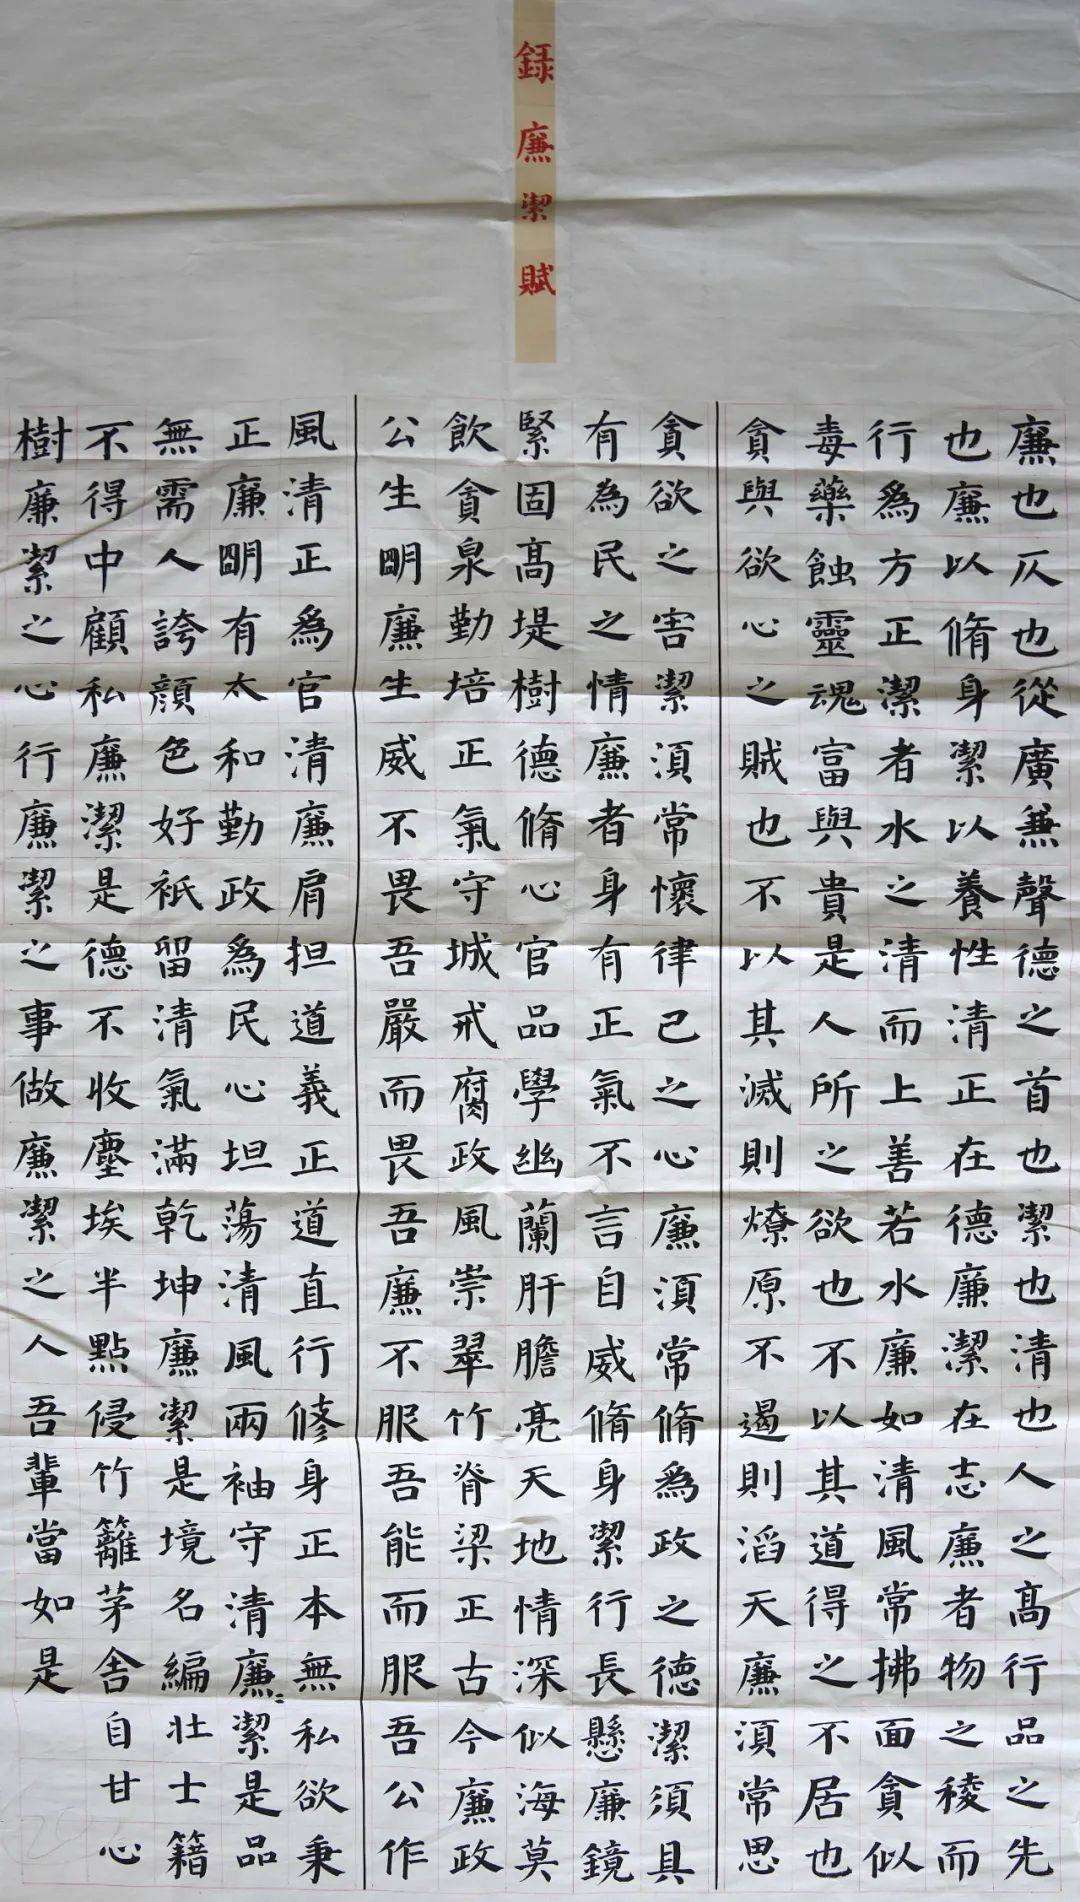 録廉潔賦
廉也仄也從廣兼聲德之首也潔也清也人之高行品之先
也廉以脩身潔以養性清正在德廉潔在志廉者物之稜而
行為方正潔者水之清而上善若水廉如清風常拂面貪似
毒藥蝕靈魂富與貴是人所之欲也不以其道得之不居也
貪與欲心之賊也不以其滅則燎原不遏則滔天廉須常思
貪欲之害潔須常懷律己之心廉須常脩為政之德潔須具
有為民之情廉者身有正氣不言自威脩身潔行長懸廉鏡
緊固高堤樹德脩心官品學幽蘭肝膽亮天地情深似海莫
飲貪泉勤培正氣守城戒腐政風崇翠竹脊梁正古今廉政
公生明廉生威不畏吾嚴而畏吾廉不服吾能而服吾公作
風清正為官清廉肩担道義正道直行修身正本無私欲秉
正廉明有太和勤政為民心坦蕩清風兩袖守清廉〻潔是品
無需人誇顏色好衹留清氣滿乾坤廉潔是境名編壯士籍
不得中顧私廉潔是德不收塵埃半點侵竹籬茅舍自甘心
樹廉潔之心行廉潔之事做廉潔之人吾輩當如是